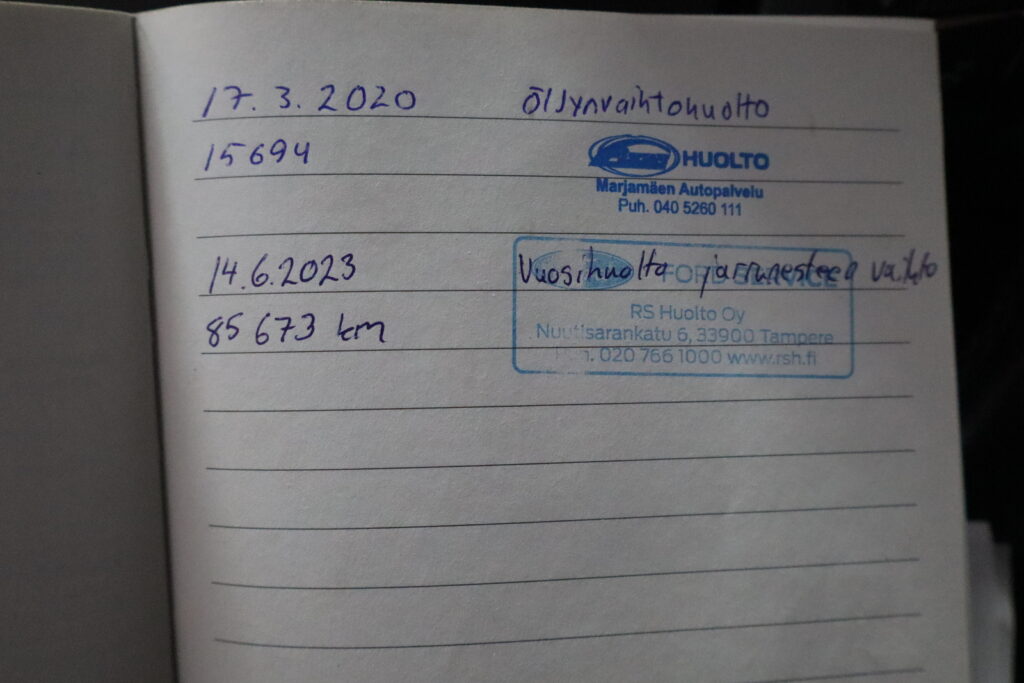 17.3.2020 Öljynvaihtohuolto
15694
HUOLTO
Marjamäen Autopalvelu
Puh. 040 5260 111
14.6.2023 Vuosihuolto jarrunesteen vaihto
FORD SERVICE
85 673 km
RS Huolto Oy
Nuutisarankatu 6, 33900 Tampere
Puh. 020 766 1000 www.rsh.fi